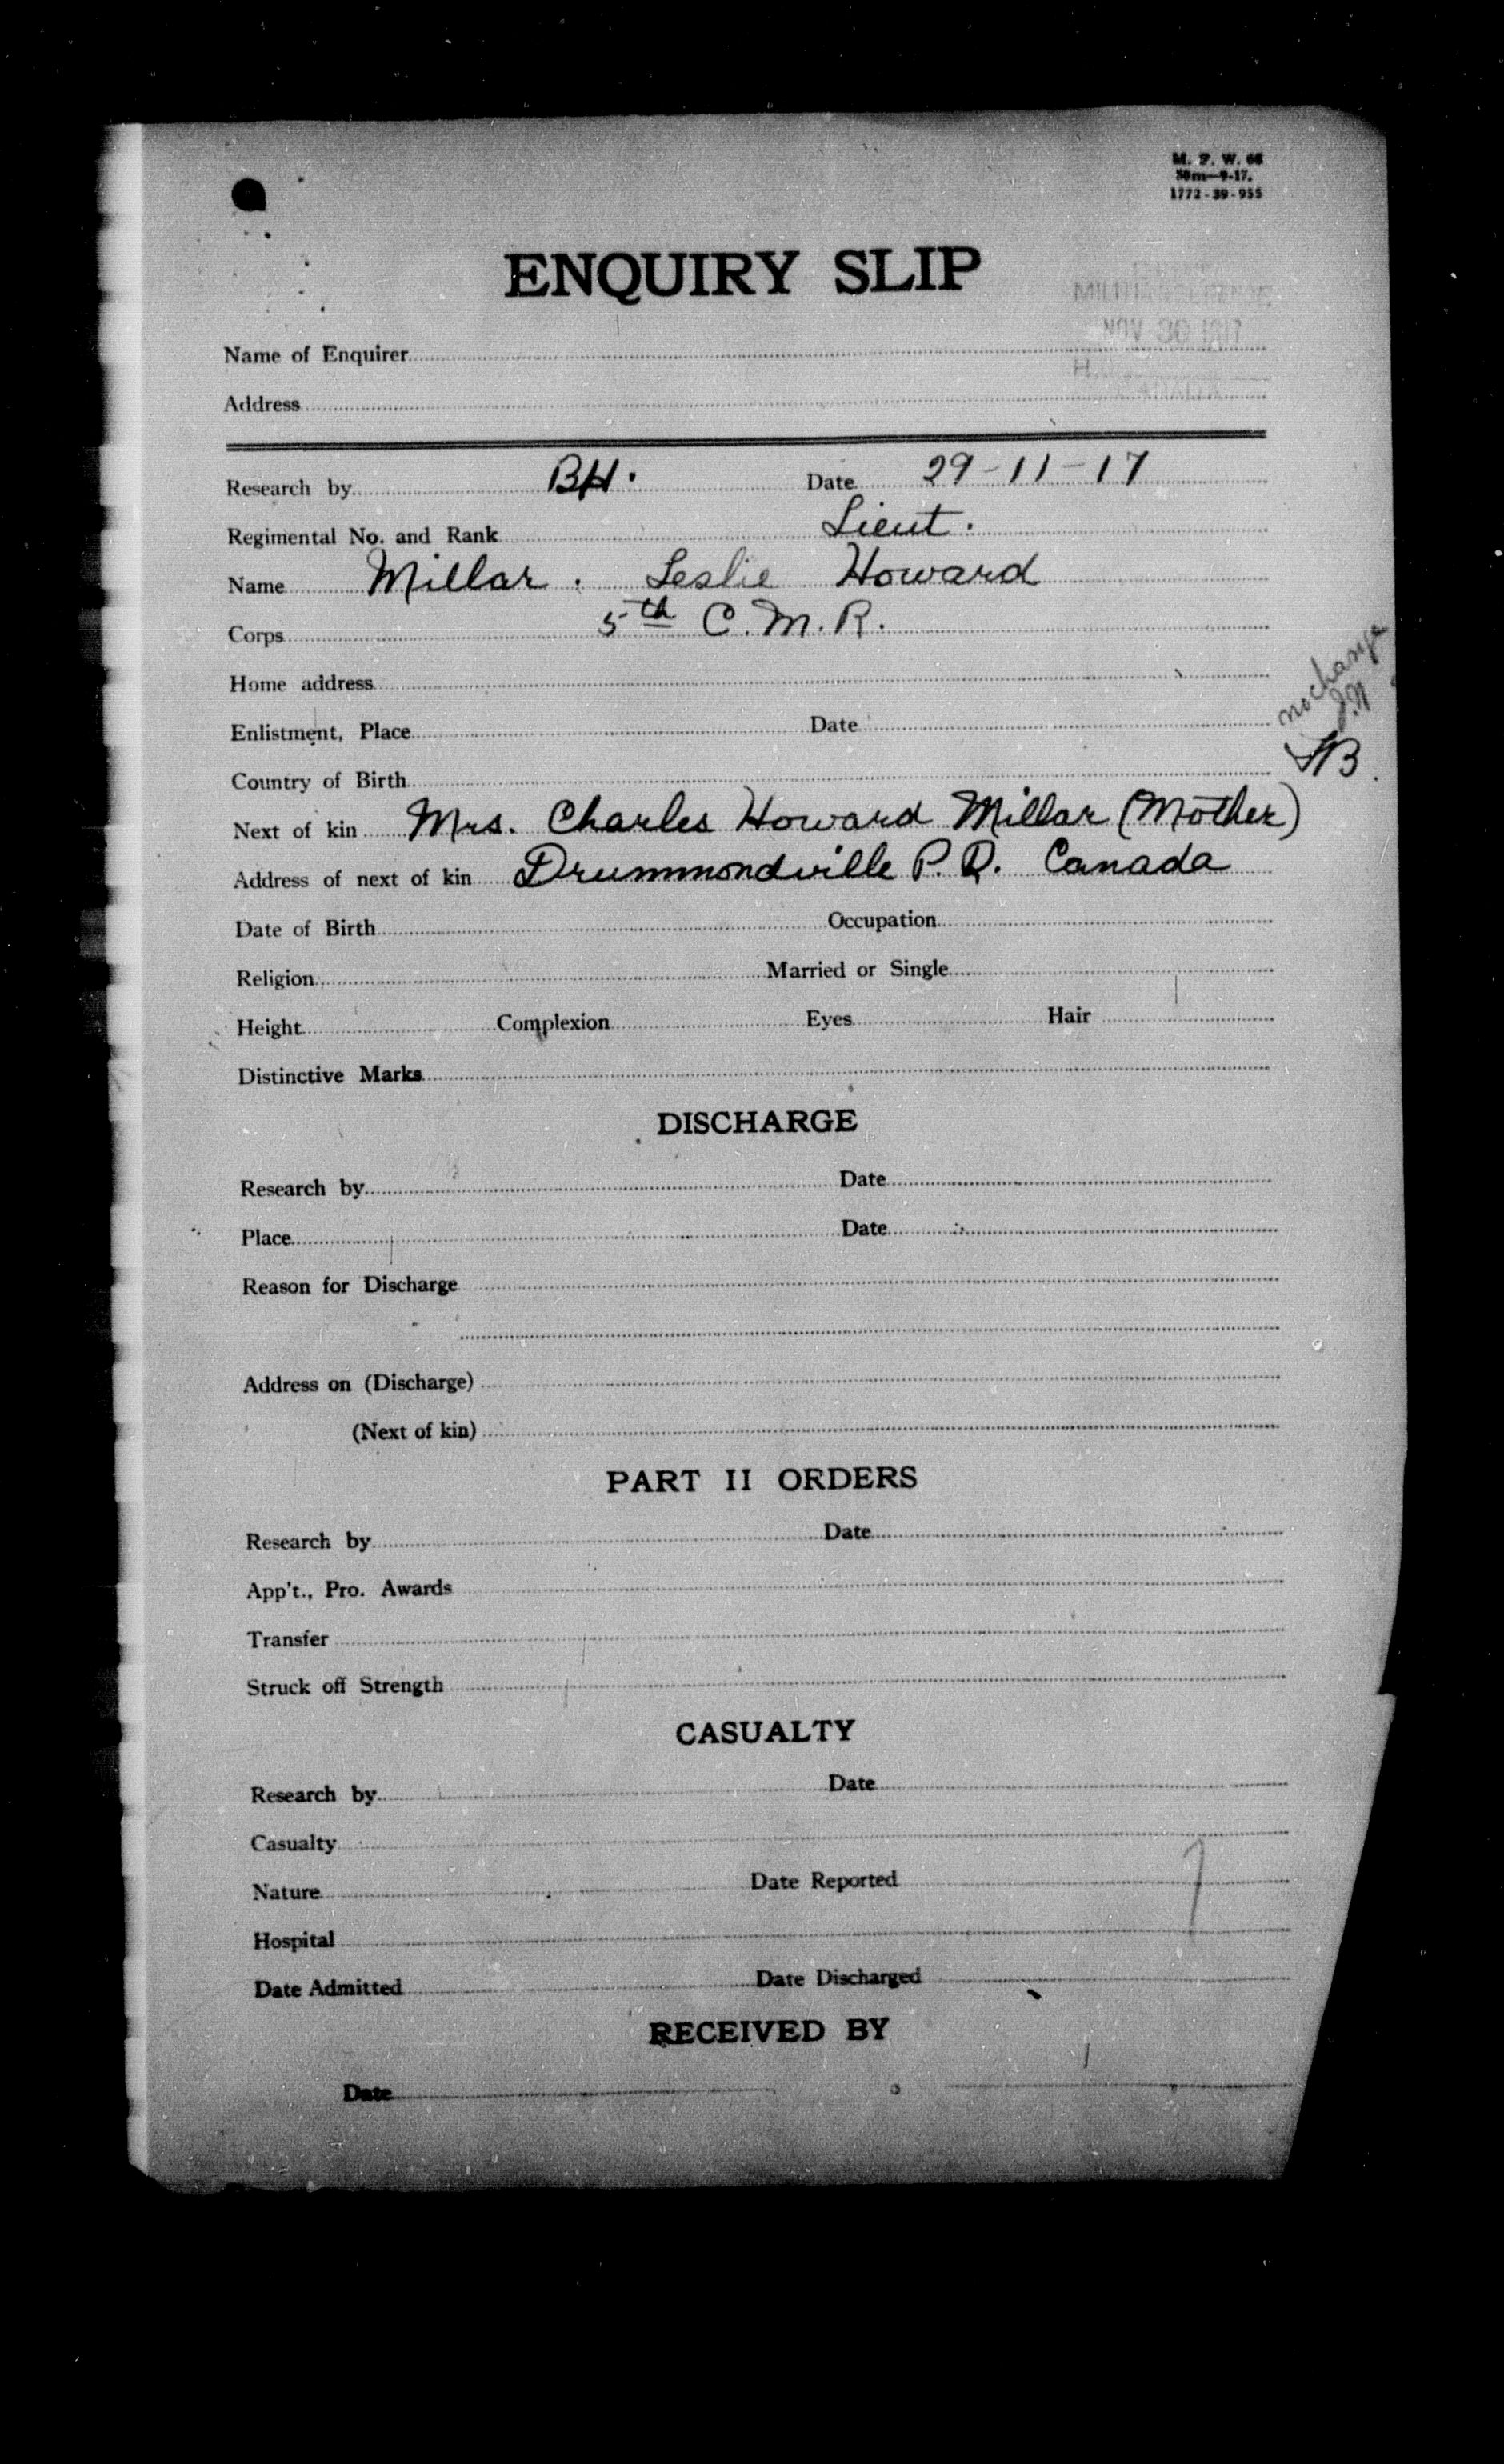 M. F. W. 66
50m—9-17.
1772-39-955
ENQUIRY SLIP
MILITIA
NOV 30 1917
Name of Enquirer
Address
Research by BH. Date 29-11-17
Regimental No. and Rank Lieut.
Name Millar. Leslie Howard
Corps 5th C.M.R.
Home address
no change
Enlistment, Place Date
Country of Birth
Next of kin Mrs. Charles Howard Millar (Mother)
Address of next of kin Drummondville P.Q. Canada
Date of Birth Occupation
Religion Married or Single
Height Complexion Eyes Hair
Distinctive Marks
DISCHARGE
Research by Date
Place Date
Reason for Discharge
Address on (Discharge)
(Next of kin)
PART II ORDERS
Research by Date
App't., Pro. Awards
Transfer
Struck off Strength
CASUALTY
Research by Date
Casualty
Nature Date Reported
Hospital
Date Admitted Date Discharged
RECEIVED BY
Date